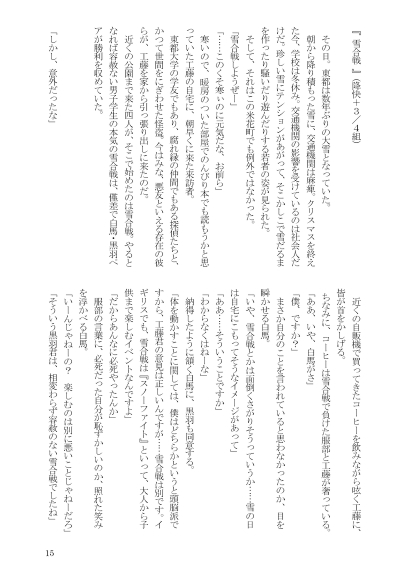 『雪合戦』(降快＋３／４組)
その日。東都は数年ぶりの大雪となっていた。
朝から降り積もった雪に、交通機関は麻痺。クリスマスを終え
た今、学校は冬休み。交通機関の影響を受けているのは社会人だ
けだ。珍しい雪にテンションがあがって、そこかしこで雪だるま
を作ったり騒いだり遊んだりする若者の姿が見られた。
そして、それはこの米花町でも例外ではなかった。
「雪合戦しようぜー」
「……このくそ寒いのに元気だな、お前ら」
寒いので、暖房のついた部屋でのんびり本でも読もうかと思
っていた工藤の自宅に、朝早くに来た来訪者。
東都大学の学友でもあり、腐れ縁の仲間でもある探偵たちと、
かつて世間をにぎわせた怪盗。今はみな、悪友といえる存在の彼
らが、工藤を家から引っ張り出しに来たのだ。
近くの公園まで来た四人が、そこで始めたのは雪合戦。やると
なれば容赦ない男子学生の本気の雪合戦は、僅差で白馬・黒羽ペ
アが勝利を収めていた。
「しかし、意外だったな」
近くの自販機で買ってきたコーヒーを飲みながら呟く工藤に、
皆が首をかしげる。
ちなみに、コーヒーは雪合戦で負けた服部と工藤が奢っている。
「ああ、いや、白馬がさ」
「僕、ですか？」
まさか自分のことを言われていると思わなかったのか、目を
瞬かせる白馬。
「いや、雪合戦とかは面倒くさがりそうっていうか……雪の日
は自宅にこもってそうなイメージがあって」
「ああ……そういうことですか」
「わからなくはねーな」
納得したように頷く白馬に、黒羽も同意する。
「体を動かすことに関しては、僕はどちらかというと頭脳派で
すから、工藤君の意見は正しいんですが……雪合戦は別です。イ
ギリスでも、雪合戦は『スノーファイト』といって、大人から子
供まで楽しむイベントなんですよ」
「だからあんなに必死やったんか」
服部の言葉に、必死だった自分が恥ずかしいのか、照れた笑み
を浮かべる白馬。
「いーんじゃねーの？　楽しむのは別に悪いことじゃねーだろ」
「そういう黒羽君は、相変わらず容赦のない雪合戦でしたね」
15